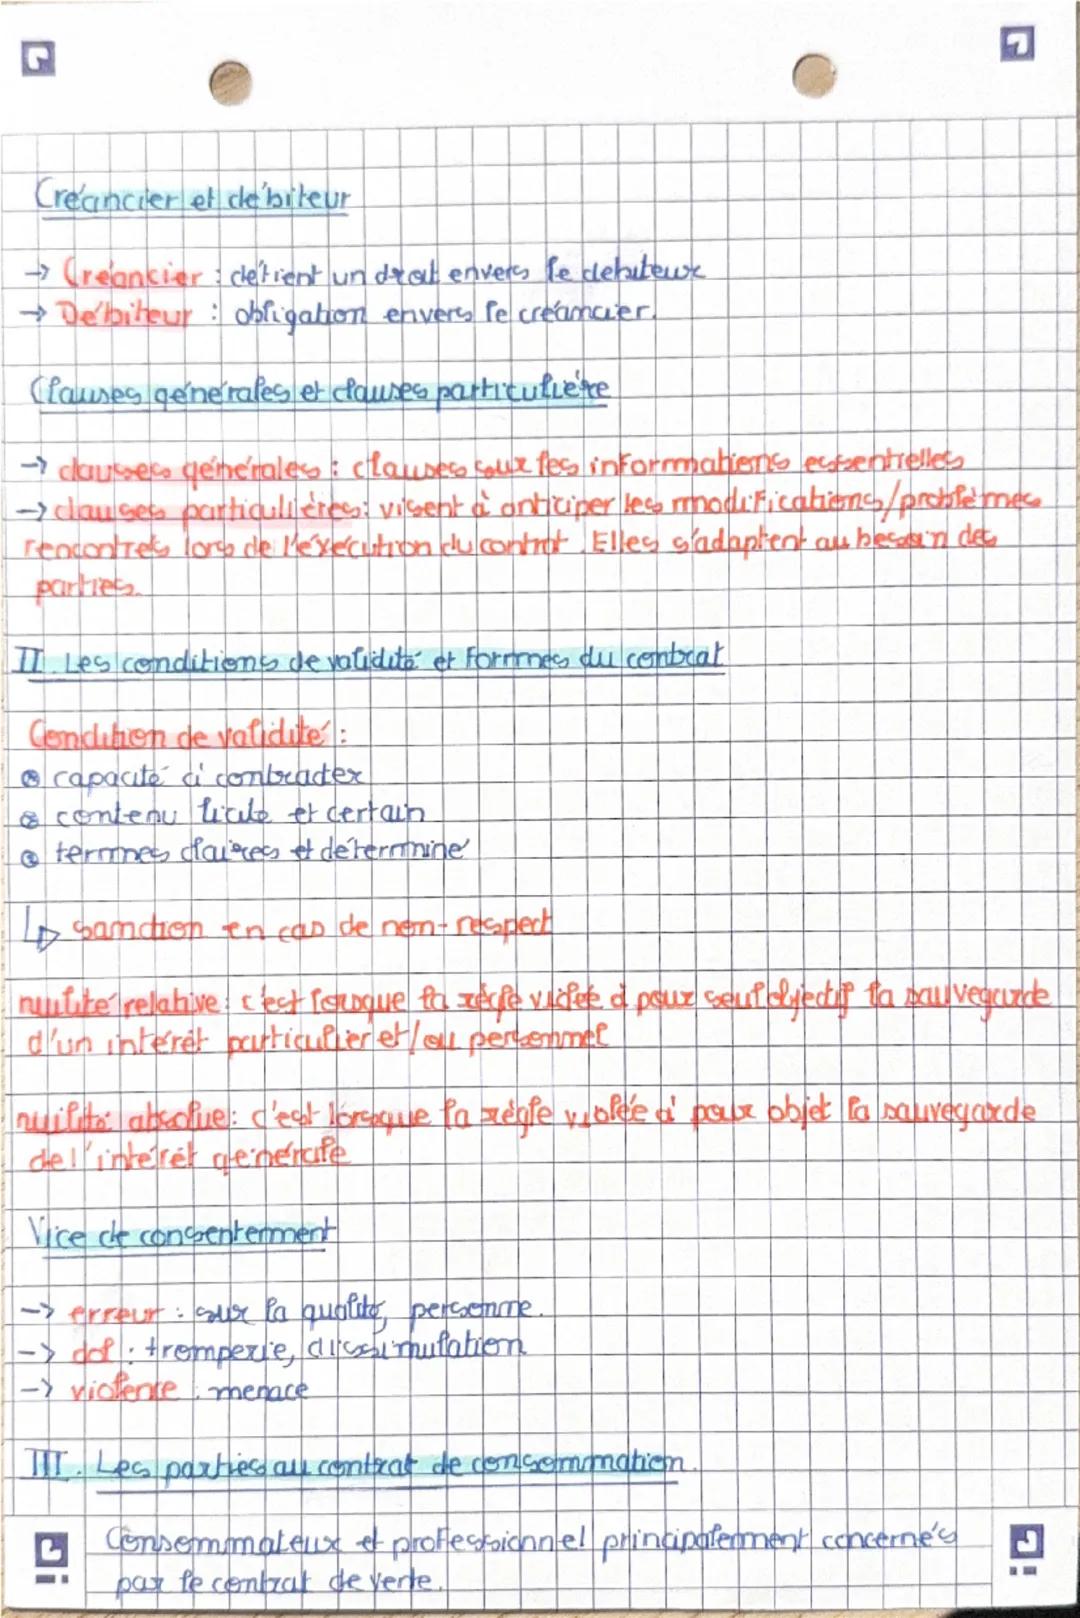 Créancier et débiteur
→ Créancier : détient un droit envers le debiteur
→ Débiteur : obligation envers le créancier.
Clauses générales et clauses particulière
→ clauses générales : clauses sur les informations essentielles
→ clauses particulières : visent à anticiper les modifications/problèmes
rencontrés lors de l'éxécution du contrat. Elles s'adaptent au besoin des
parties.
II. Les conditions de validité et formes du contrat
Condition de validité :
capacité à contracter
contenu licite et certain
termes claires et déterminé
↳ sanction en cas de non-respect
nullité relative : c'est lorsque la règle violée à pour seul objectif la sauvegarde
d'un intérêt particulier et/ou personnel
nullité absolue : c'est lorsque la règle violée à pour objet la sauvegarde
de l'intérêt générale
Vice de consentement
-> erreur : sur la qualité, personne.
-> dol : tromperie, dissimulation
-> violence : menace
III. Les parties au contrat de consommation.
Consommateur et professionnel principalement concernés
par le contrat de vente.